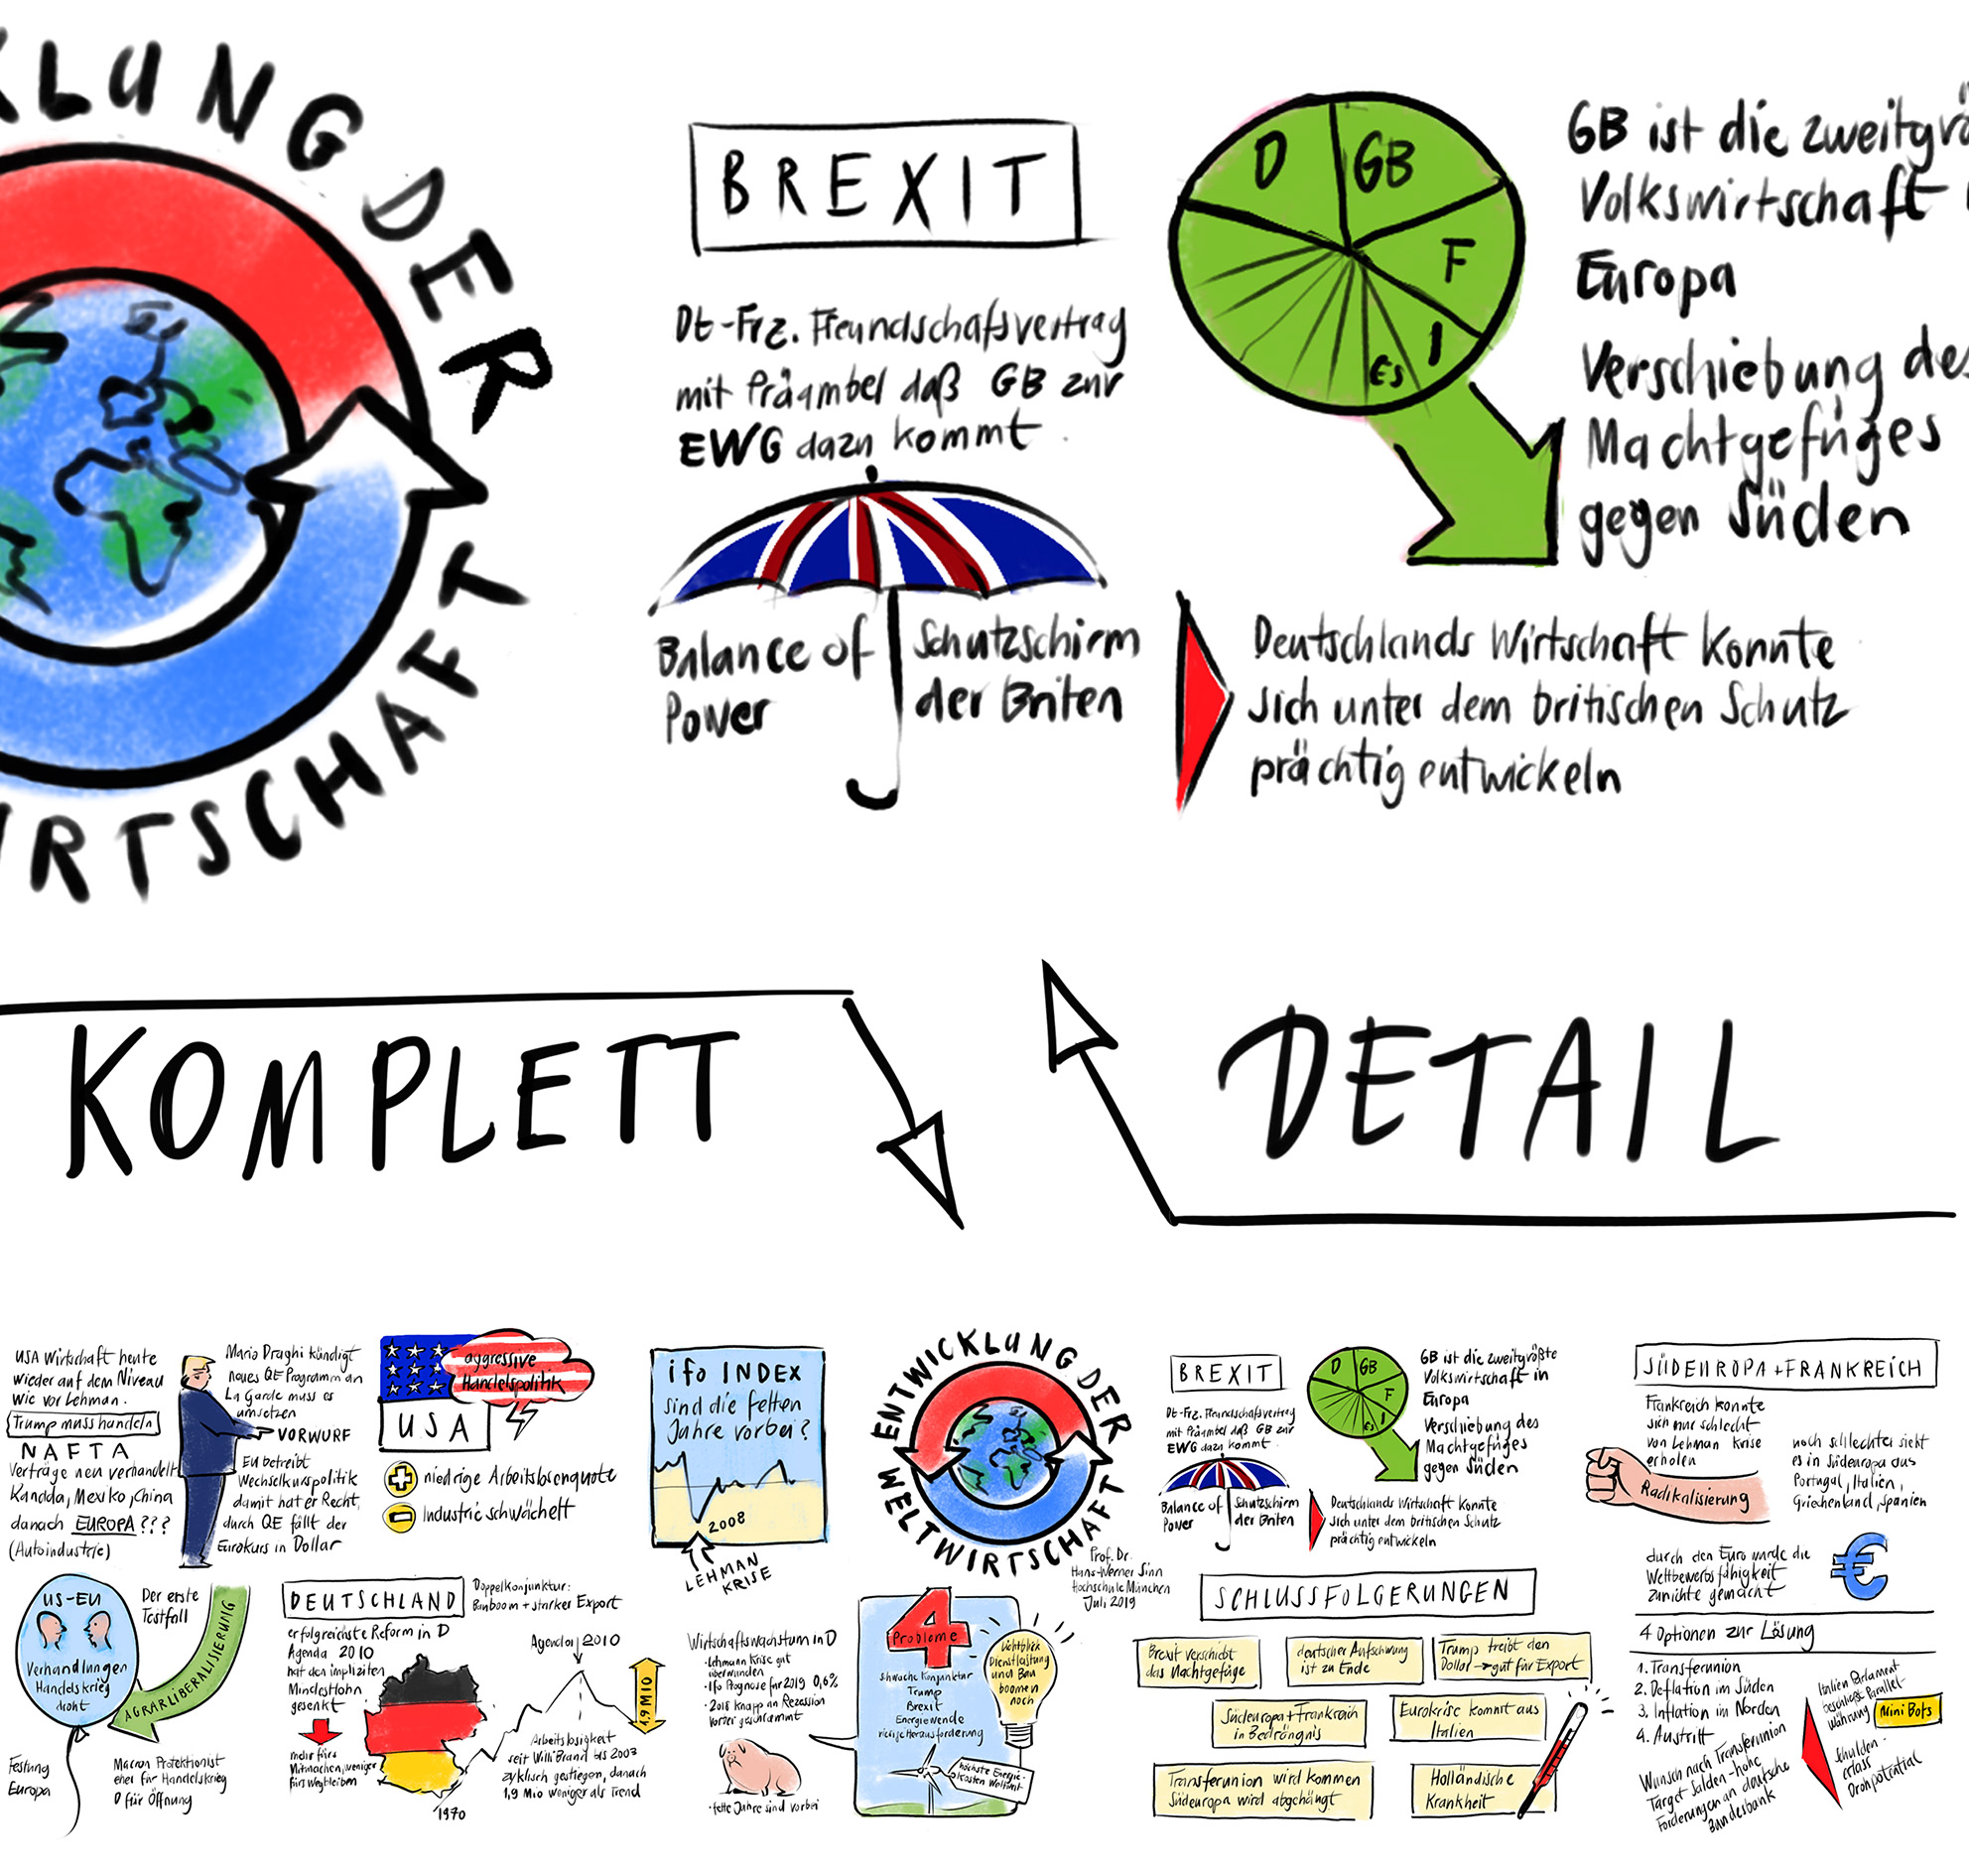 KLUNG DER
IRTSCHAFT
BREXIT
Dt-Frz. Freundschaftsvertrag
mit Präambel daß GB zur
EWG dazu kommt.
Balance of
Power
Schutzschirm
der Briten
D
GB
F
I
Es
GB ist die zweitgrö
Volkswirtschaft
Europa
Verschiebung des
Machtgefüges
gegen Süden
Deutschlands Wirtschaft konnte
sich unter dem britischen Schutz
prächtig entwickeln
KOMPLETT
DETAIL
USA Wirtschaft heute
wieder auf dem Niveau
wie vor Lehman.
Trump muss handeln
NAFTA
Verträge neu verhandelt
Kanada, Mexiko, China
danach EUROPA???
(Autoindustrie)
Mario Draghi kündigt
neues QE Programm an
La Garde muss es
umsetzen
VORWURF
EU betreibt
Wechselkurspolitik
damit hat er Recht,
durch QE fällt der
Eurokurs in Dollar
aggressive
Handelspolitik
USA
niedrige Arbeitslosenquote
Industrie schwächelt
ifo INDEX
sind die fetten
Jahre vorbei?
2008
LEHMAN
KRISE
ENTWICKLUNG DER
WELTWIRTSCHAFT
Prof. Dr.
Hans-Werner Sinn
Hochschule München
Juli 2019
BREXIT
Dt-Frz. Freundschaftsvertrag
mit Präambel daß GB zur
EWG dazu kommt.
Balance of
Power
Schutzschirm
der Briten
D
GB
F
I
Es
GB ist die zweitgrößte
Volkswirtschaft in
Europa
Verschiebung des
Machtgefüges
gegen Süden
Deutschlands Wirtschaft konnte
sich unter dem britischen Schutz
prächtig entwickeln
SÜDEUROPA+FRANKREICH
Frankreich konnte
sich nur schlecht
von Lehman Krise
erholen
Radikalisierung
noch schlechter sieht
es in Südeuropa aus
Portugal, Italien,
Griechenland, Spanien
durch den Euro wurde die
Wettbewerbsfähigkeit
zunichte gemacht
€
4 Optionen zur Lösung
1. Transferunion
2. Deflation im Süden
3. Inflation im Norden
4. Austritt
Wunsch nach Transferunion
Target Salden - hohe
Forderungen an deutsche
Bundesbank
Italien Parlament
beschließt Parallel-
währung
Mini Bots
Schulden-
erlass
Drohpotential
US-EU
Verhandlungen
Handelskrieg
droht
Der erste
Testfall
AGRARLIBERALISIERUNG
Festung
Europa
Macron Protektionist
eher für Handelskrieg
D für Öffnung
DEUTSCHLAND
Doppelkonjunktur:
Bauboom + starker Export
erfolgreichste Reform in D
Agenda 2010
hat den impliziten
Mindestlohn
gesenkt
mehr fürs
Mitmachen, weniger
fürs wegbleiben
Agenda 2010
1,9 MIO
1970
Arbeitslosigkeit
seit Willi Brand bis 2003
zyklisch gestiegen, danach
1,9 Mio weniger als Trend
Wirtschaftswachstum in D
-Lehmann Krise gut
überwunden
-Ifo Prognose für 2019 0,6%
-2018 knapp an Rezession
vorbei geschrammt
-fette Jahre sind vorbei
4
Probleme
schwache Konjunktur
Trump
Brexit
Energiewende
Herausforderung
Lichtblick
Dienstleistung
und Bau
boomen
noch
höchste Energie-
kosten Weltweit
SCHLUSSFOLGERUNGEN
Brexit verschiebt
das Machtgefüge
deutscher Aufschwung
ist zu Ende
Trump treibt den
Dollar → gut für Export
Südeuropa+Frankreich
in Bedrängnis
Eurokrise kommt aus
Italien
Transferunion wird kommen
Südeuropa wird abgehängt
Holländische
Krankheit